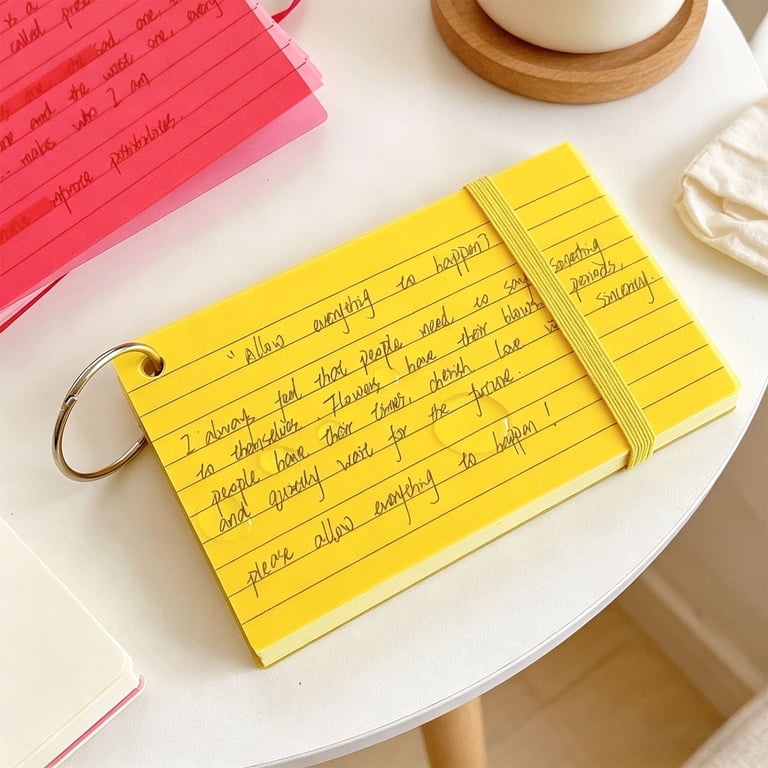 is a
called
sad one,
one and the worst one, every
makes who I am
more possibilities.
"Allow everything to happen?
I always feel that people need to say something
to themselves. Flowers have their blow periods,
people have their times, cherish love sincerely.
and quietly wait for the future.
please allow everything to happen!